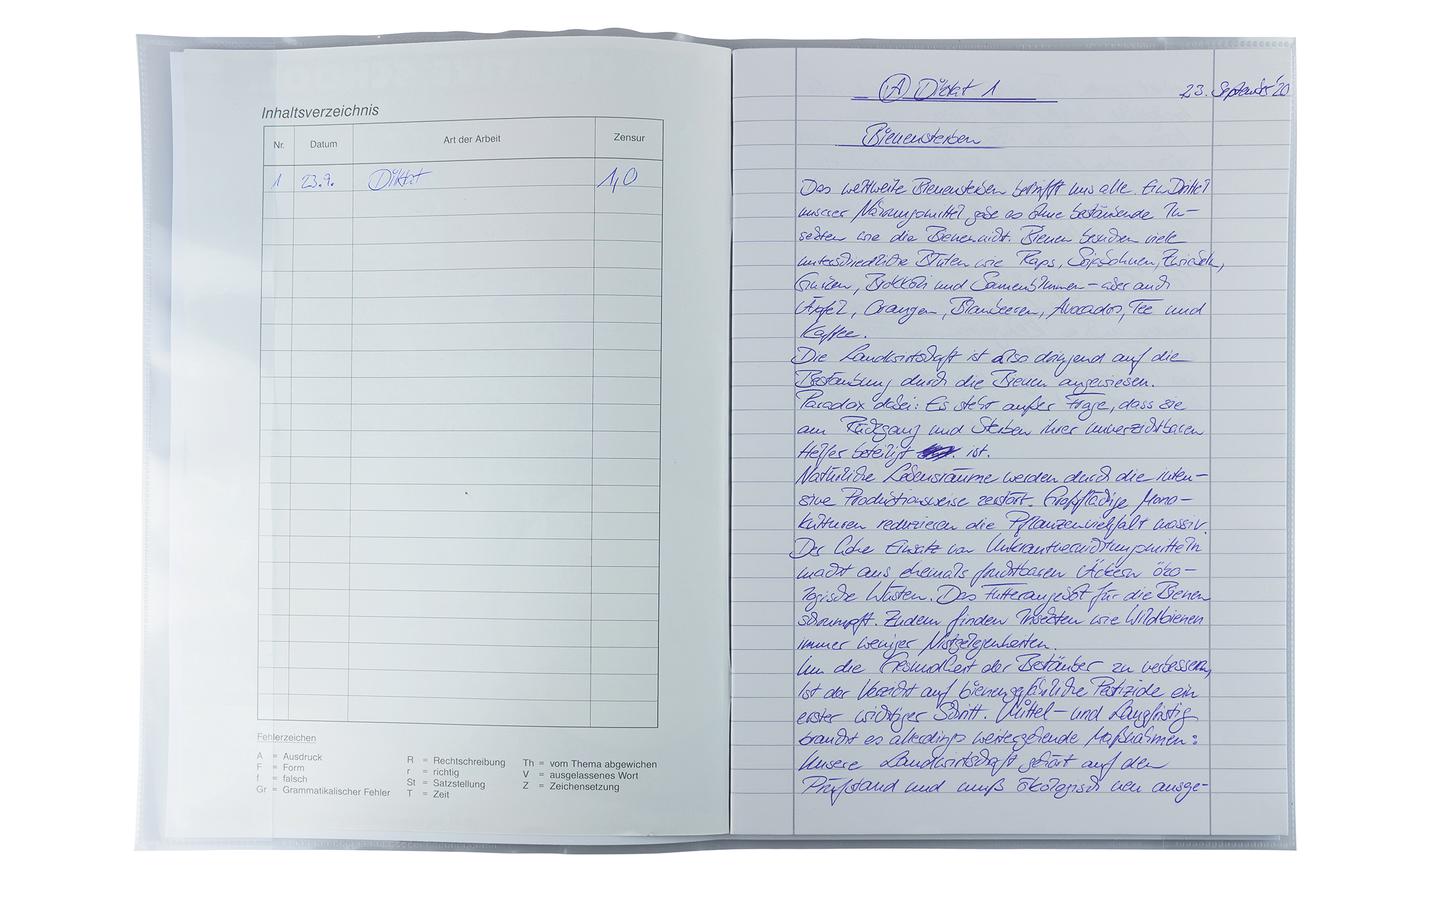 Inhaltsverzeichnis
Nr. Datum Art der Arbeit Zensur
1 23.9. Diktat 1,0
Fehlerzeichen
A = Ausdruck
F = Form
f = falsch
Gr = Grammatikalischer Fehler
R = Rechtschreibung
r = richtig
St = Satzstellung
T = Zeit
Th = vom Thema abgewichen
V = ausgelassenes Wort
Z = Zeichensetzung
A Diktat 1 23. September '20
Bienensterben
Das weltweite Bienensterben betrifft uns alle. Ein Drittel
unserer Nahrungsmittel gäbe es ohne bestäubende In-
sekten wie die Bienen nicht. Bienen besuchen viele
unterschiedliche Blüten wie Raps, Sojabohnen, Zwiebeln,
Gurken, Brokkoli und Sonnenblumen - aber auch
Äpfel, Orangen, Blaubeeren, Avocados, Tee und
Kaffee.
Die Landwirtschaft ist also dringend auf die
Bestäubung durch die Bienen angewiesen.
Paradox dabei: Es steht außer Frage, dass sie
am Rückgang und Sterben ihrer unverzichtbaren
Helfer beteiligt ist.
Natürliche Lebensräume werden durch die inten-
sive Produktionsweise zerstört. Großflächige Mono-
kulturen reduzieren die Pflanzenvielfalt massiv.
Der hohe Einsatz von Unkrautvernichtungsmitteln
macht aus ehemals fruchtbaren Äckern öko-
logische Wüsten. Das Futterangebot für die Bienen
schrumpft. Zudem finden Insekten wie Wildbienen
immer weniger Nistgelegenheiten.
Um die Gesundheit der Bestäuber zu verbessern,
ist der Verzicht auf bienengefährliche Pestizide ein
erster wichtiger Schritt. Mittel- und Langfristig
braucht es allerdings weitergehende Maßnahmen:
Unsere Landwirtschaft gehört auf den
Prüfstand und muß ökologisch neu ausge-